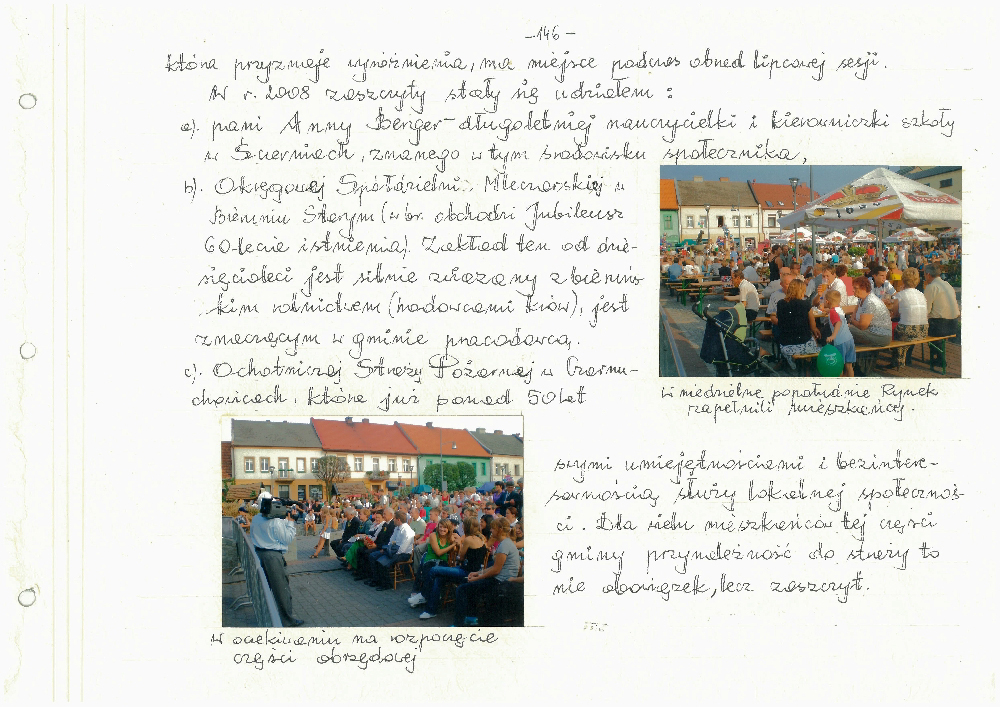 - 146 -
która przyznaje wyróżnienia, ma miejsce podczas obrad lipcowej sesji.
W r. 2008 zaszczyty stały się udziałem :
a). pani Anny Berger - długoletniej nauczycielki i kierowniczki szkoły
w Ścierniach, znanego w tym środowisku społecznika,
b). Okręgowej Spółdzielni Mleczarskiej w
Bieruniu Starym (w br. obchodzi Jubileusz
60-lecia istnienia). Zakład ten od dzie-
sięcioleci jest silnie związany z bieruńs-
kim rolnictwem (hodowcami krów), jest
znaczącym w gminie pracodawcą.
c). Ochotniczej Straży Pożarnej w Czarnu-
chowicach, która już ponad 50 lat
W niedzielne popołudnie Rynek
zapełnili mieszkańcy.
swymi umiejętnościami i bezintere-
sownością służy lokalnej społecznoś-
ci. Dla wielu mieszkańców tej części
gminy przynależność do straży to
nie obowiązek, lecz zaszczyt.
W oczekiwaniu na rozpoczęcie
części obrzędowej